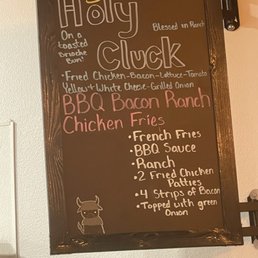 Holy
On a
toasted
Brioche
Bun!
Blessed on Ranch
Cluck
•Fried Chicken-Bacon-Lettuce-Tomato
Yellow+White Cheese-Grilled Onion
BBQ Bacon Ranch
Chicken Fries
•French Fries
•BBQ Sauce
•Ranch
•2 Fried Chicken
Patties
•4 Strips of Bacon
•Topped with green
Onion